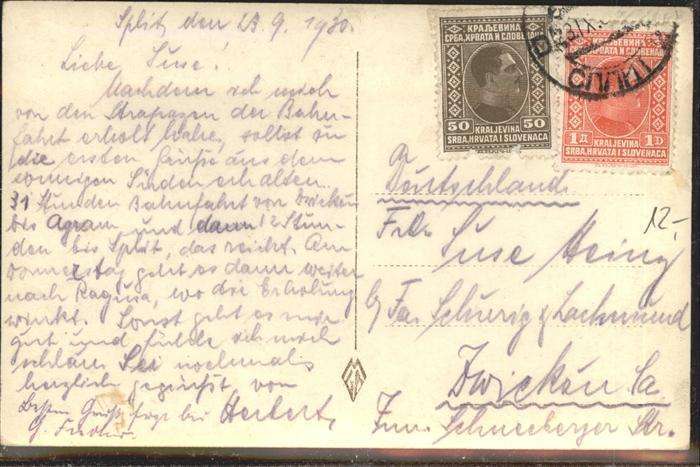 Split, den 23.9.1930.
Liebe Suse!
Nachdem ich mich
von den Strapazen der Bahn-
fahrt erholt habe, sollst du
die ersten Grüße aus dem
sonnigen Süden erhalten.
31 Stunden Bahnfahrt von Zwickau
bis Agram und dann 12 Stun-
den bis Split, das reicht. Am
Donnerstag geht es dann weiter
nach Ragusa, wo die Erholung
winkt. Sonst geht es mir
gut und fühle ich mich
Sei nochmals
herzlich gegrüßt, von
Herbert
Besten Gruß
КРАЉЕВИНА
СРБА, ХРВАТА И СЛОВЕНАЦА
50 50
KRALJEVINA
SRBA, HRVATA I SLOVENACA
КРАЉЕВИНА
СРБА, ХРВАТА И СЛОВЕНАЦА
1Д 1D
KRALJEVINA
SRBA, HRVATA I SLOVENACA
Deutschland
12.-
Frl.
Suse Heinz
Fa. Schurig & Lachmund
Zwickau Sa
Schneeberger Str.